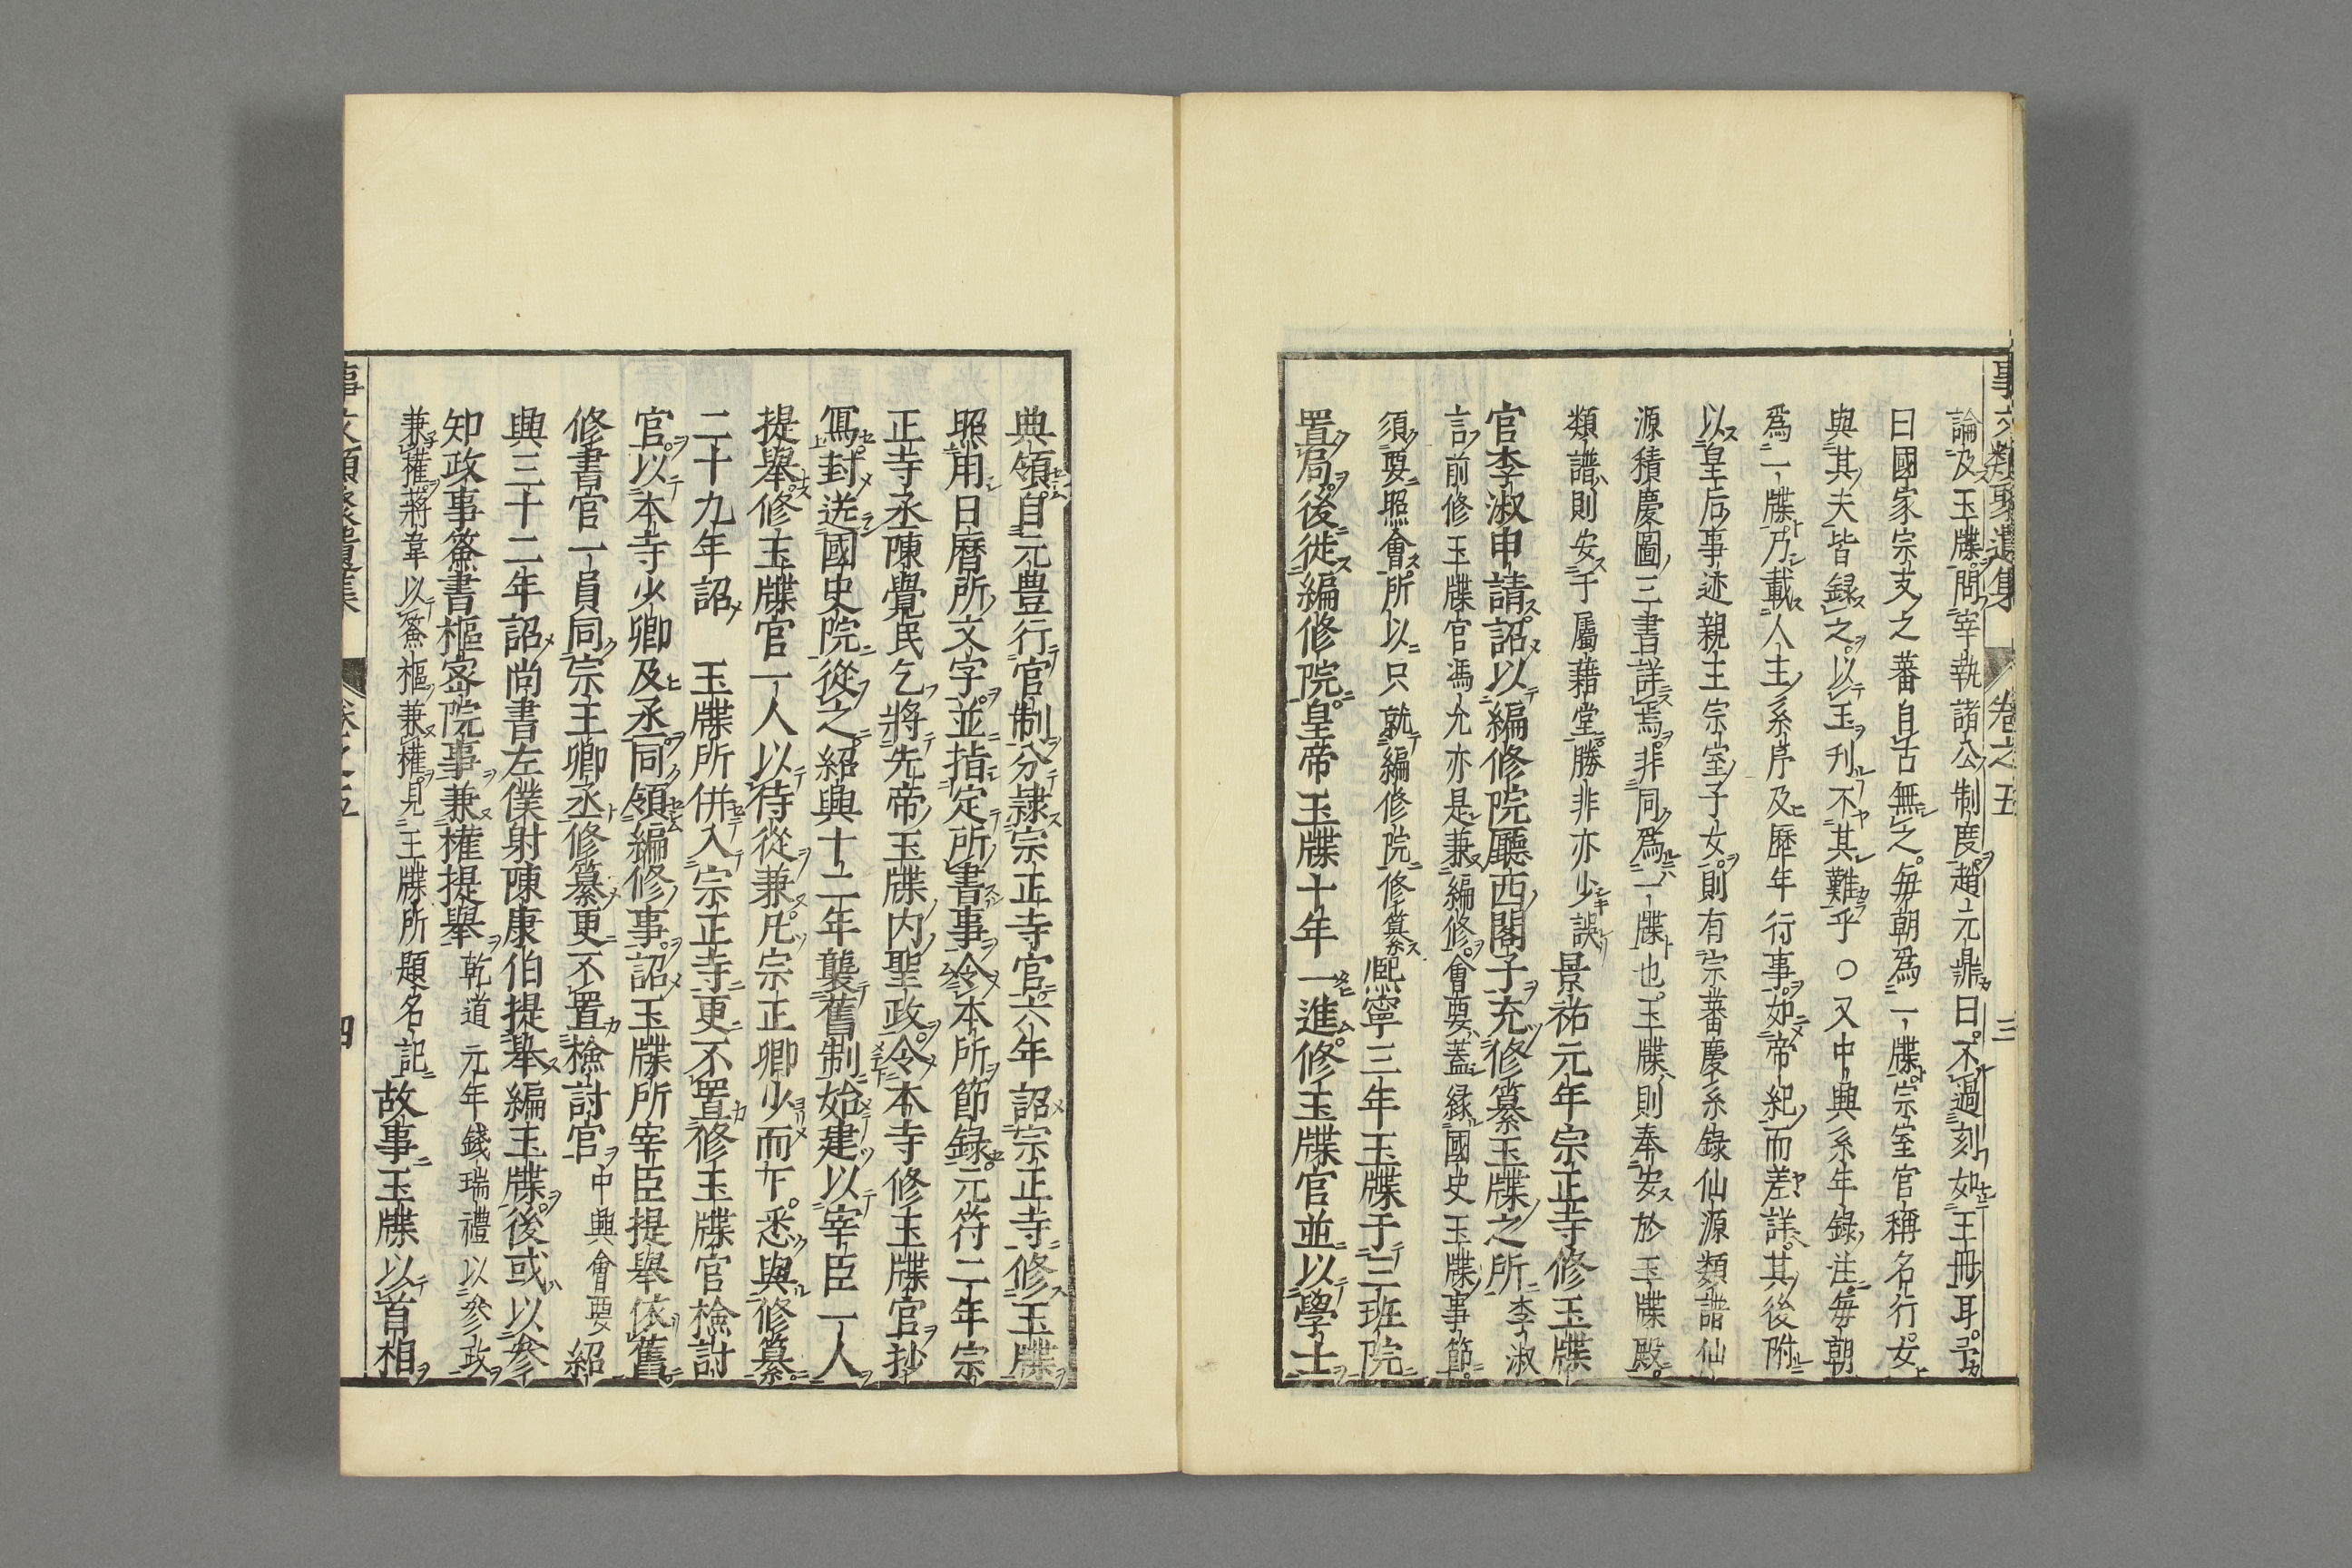 事文類聚遺集 卷之五 三
論及玉牒問宰執諸公制度趙元鼎曰不過刻如玉冊耳予
曰國家宗支之蕃自古無之每朝爲一牒宗室官稱名行女
與其夫皆録之以玉刊不其難乎〇又中興系年錄注每朝
爲一牒乃載人主系序及歷年行事如帝紀而差詳其後附
以皇后事迹親王宗室子女則有宗蕃慶系錄仙源類譜仙
源積慶圖三書詳焉非同爲一牒也玉牒則奉安於玉牒殿
類譜則安于屬藉堂勝非亦少誤 景祐元年宗正寺修玉牒
官李淑申請詔以編修院廳西閣子充修纂玉牒之所 李淑
言前修玉牒官馮允亦是兼編修會要蓋緑國史玉牒事節
須要照會所以只就編修院修纂 熙寧三年玉牒于三班院
置局後徙編修院皇帝玉牒十年一進修玉牒官並以學士
典領自元豊行官制分隷宗正寺官六年詔宗正寺修玉牒
照用日曆所文字並指定所書事令本所節録元符二年宗
正寺丞陳覺民乞將先帝玉牒内聖政令本寺修玉牒官抄
寫封送國史院從之紹興十二年襲舊制始建以宰臣一人
提舉修玉牒官一人以待從兼凡宗正卿少而下悉與修纂
二十九年詔 玉牒所併入宗正寺更不置修玉牒官檢討
官以本寺少卿及丞同領編修事詔玉牒所宰臣提舉依舊
修書官一員同宗正卿丞修纂更不置檢討官 中興會要 紹
興三十二年詔尚書左僕射陳康伯提舉編玉牒後或以參
知政事簽書樞密院事兼權提舉 乾道元年錢瑞禮以參政
兼權蔣韋以簽樞兼權見玉牒所題名記 故事玉牒以首相
事文類聚遺集 卷之五 四